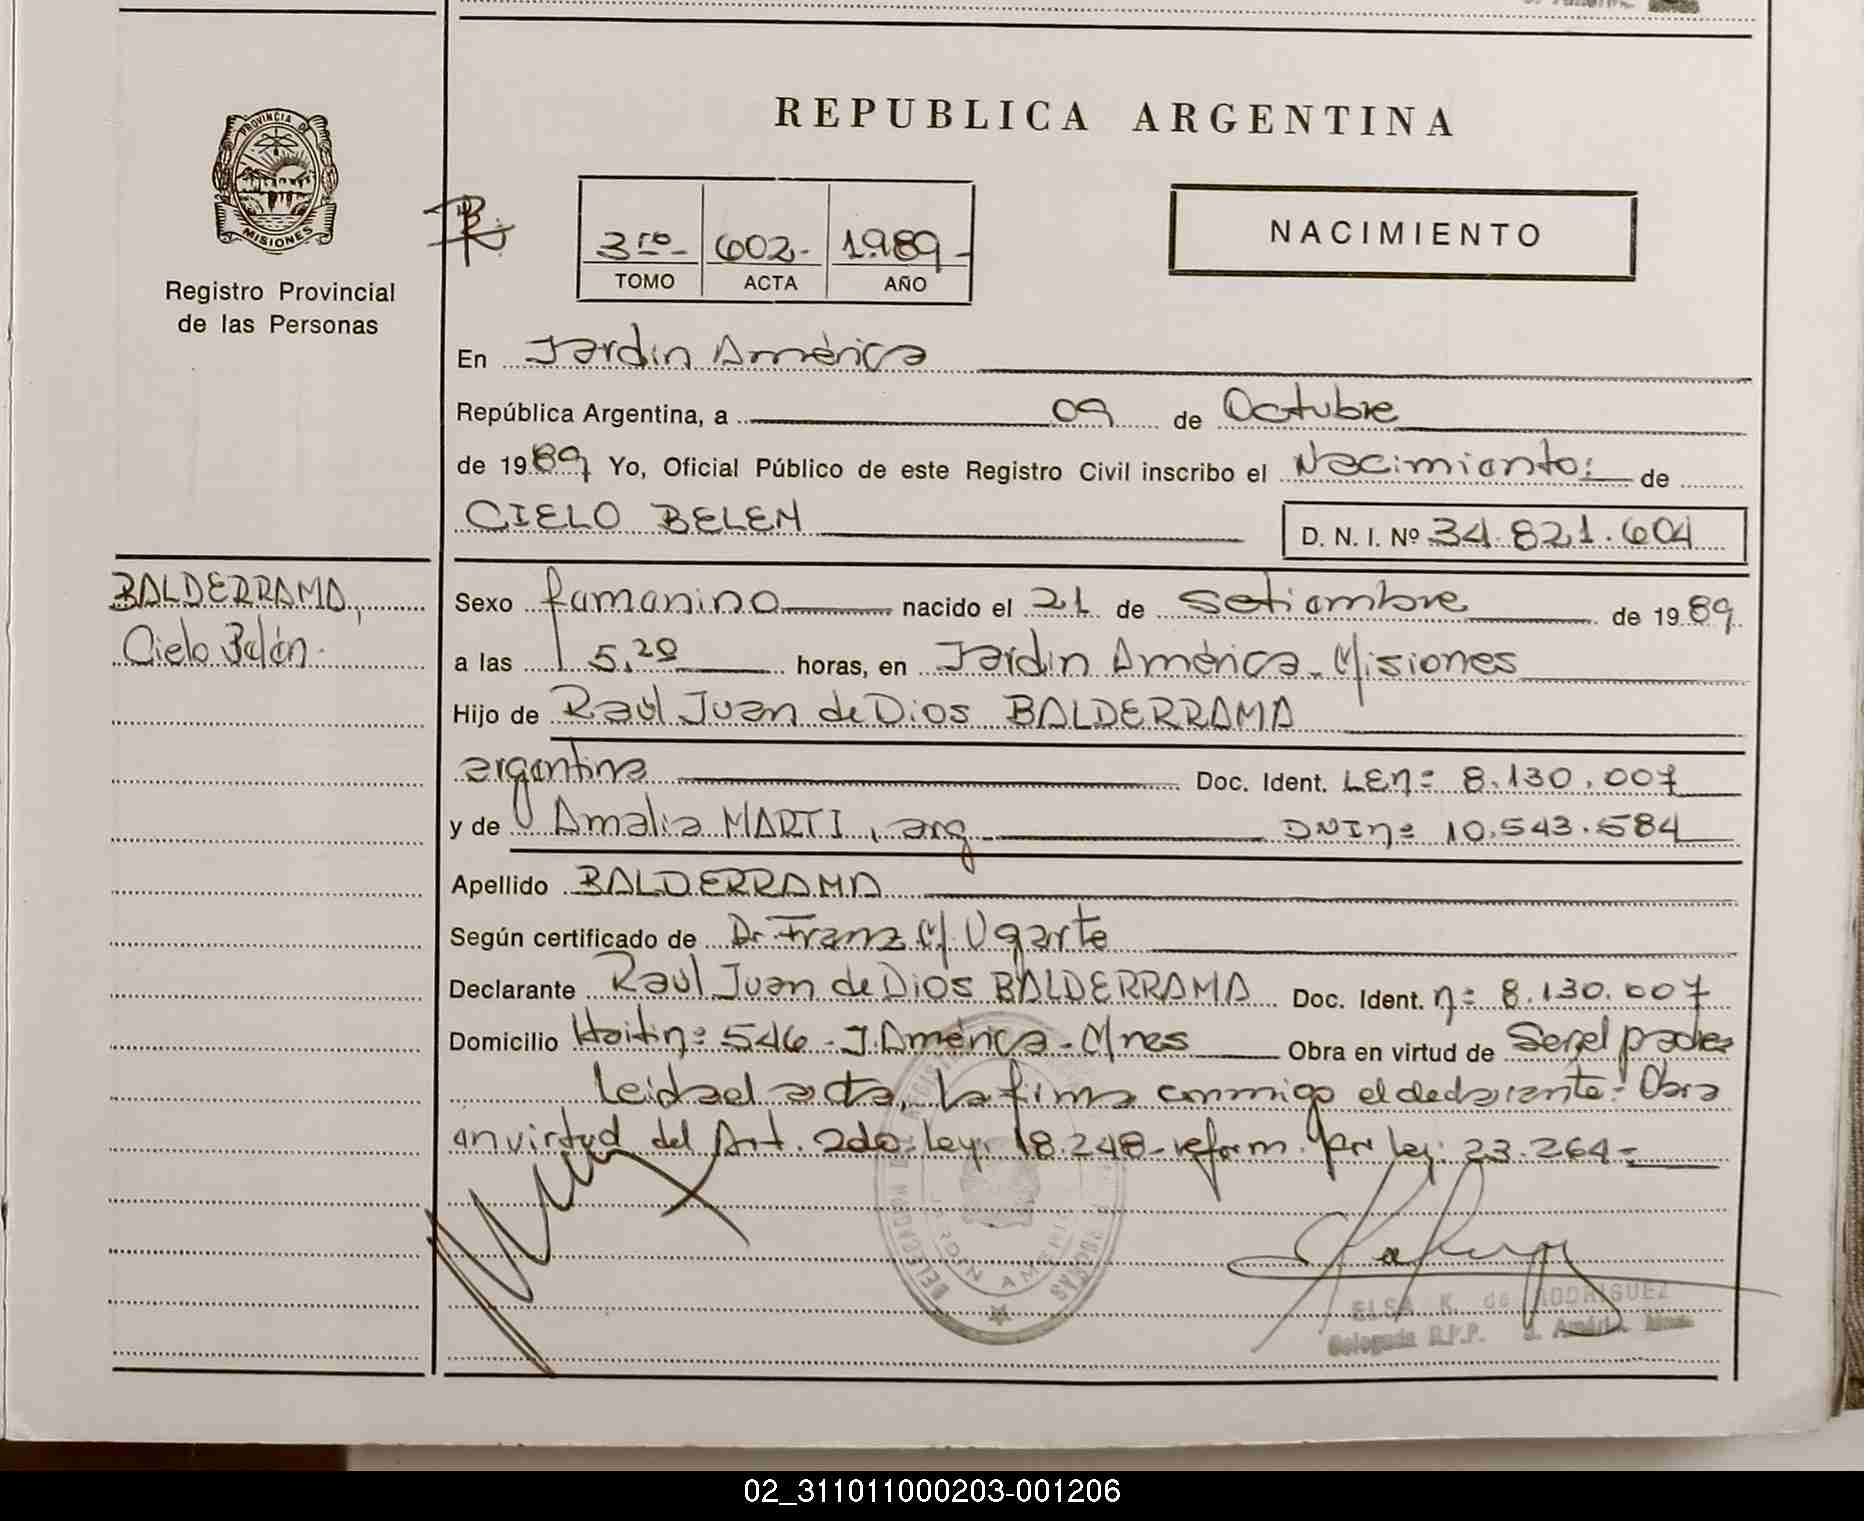 REPUBLICA ARGENTINA
PROVINCIA DE
MISIONES
Registro Provincial
de las Personas
3ro- 602- 1989-
TOMO ACTA AÑO
NACIMIENTO
En Jardin América
República Argentina, a 09 de Octubre
de 1989 Yo, Oficial Público de este Registro Civil inscribo el Nacimiento: de
CIELO BELEN
D. N. I. Nº 34.821.604
BALDERRAMA,
Cielo Belén.
Sexo femenino nacido el 21 de Setiembre de 1989
a las 5,20 horas, en Jardin América - Misiones
Hijo de Raúl Juan de Dios BALDERRAMA
argentina Doc. Ident. LEn= 8.130.007
y de Amalia MARTI, arg DNIn= 10.543.584
Apellido BALDERRAMA
Según certificado de Dr. Franz M. Ugarte
Declarante Raúl Juan de Dios BALDERRAMA Doc. Ident. n= 8.130.007
Domicilio Haitin= 546 - J. América - Mnes Obra en virtud de Ser el padre
Leida el acta, la firma conmigo el declarante: Obra
en virtud del Art. 2do Ley: 18.248 - reform. por ley: 23.264=
JARDIN AMERICA
ELSA K. de RODRIGUEZ
Delegada R.P.P. J. América
02_311011000203-001206